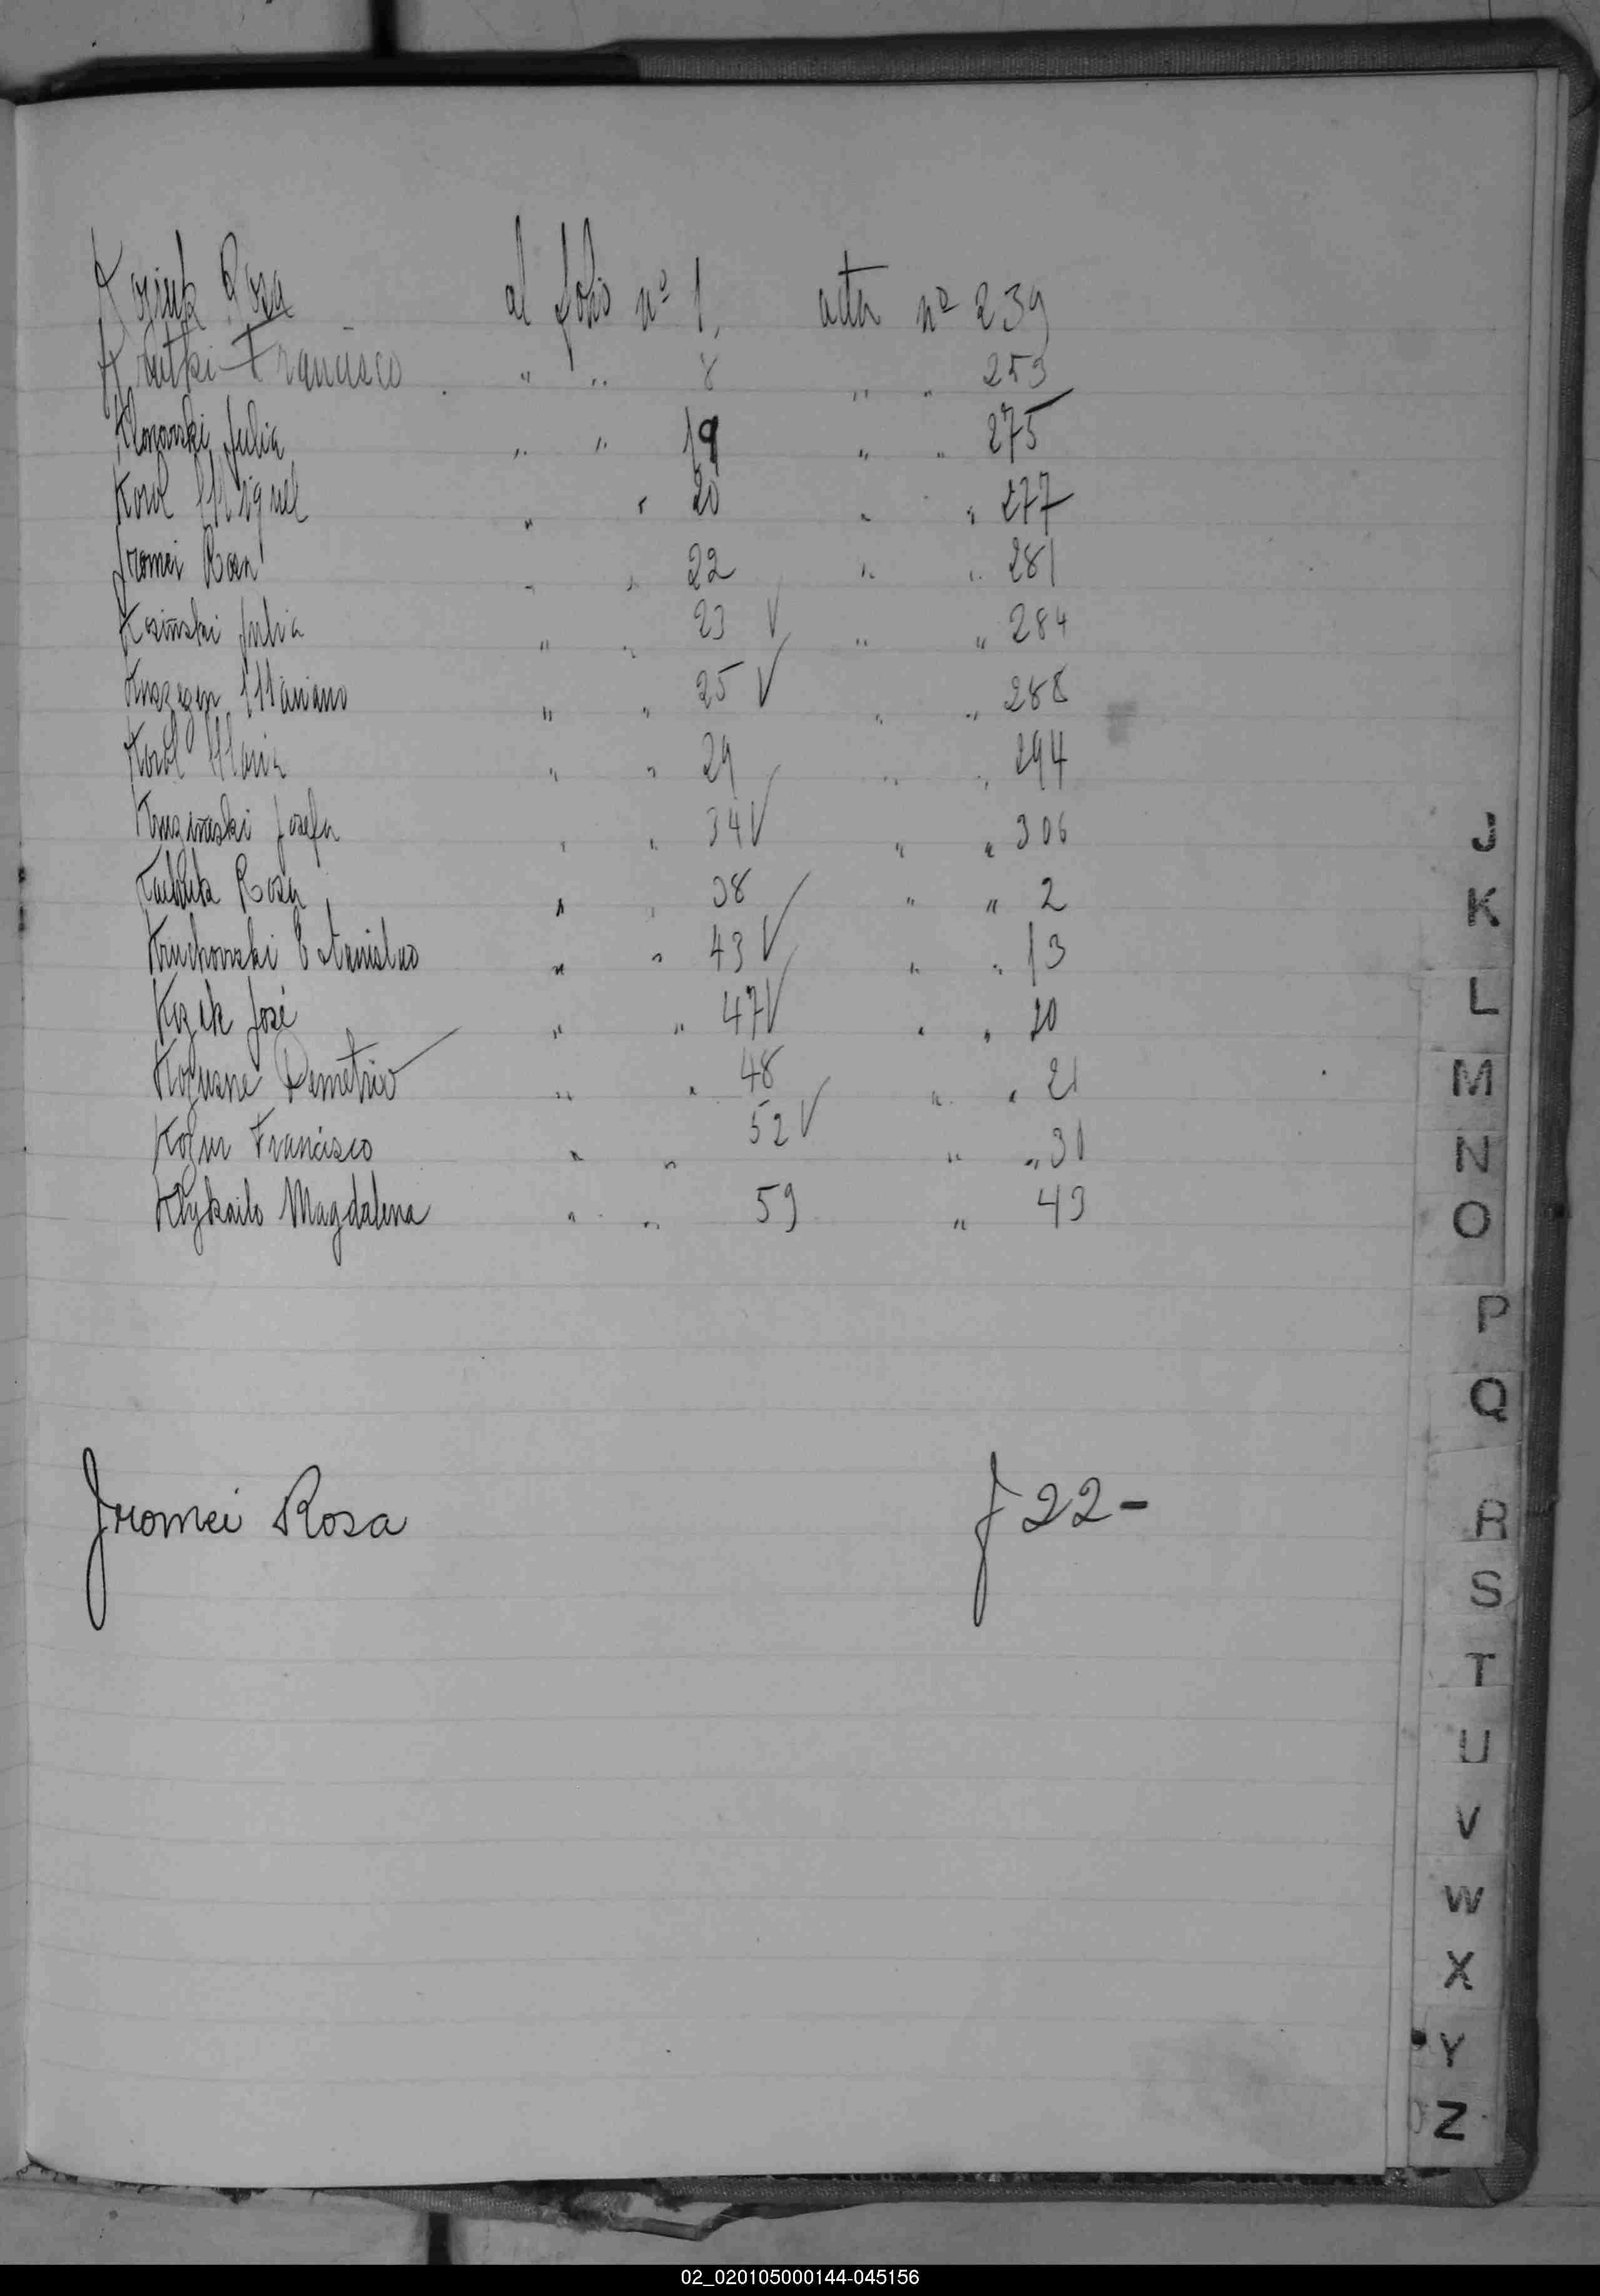 Rosa al folio nº 1, acta nº 239
Francisco " " 8 " " 253
Klonovski Julia " " 19 " " 275
Korol Miguel " " 20 " " 277
Jromei Rosa " " 22 " " 281
Kosinski Julia " " 23 V " " 284
Mariano " " 25 V " " 288
Korol Maria " " 29 " " 294
Josefa " " 34 V " " 306
Rosa " " 38 " " 2
Kruchovski Estanislao " " 43 V " " 13
Kozek José " " 47 V " " 20
Demetrio " " 48 " " 21
Francisco " " 52 V " " 31
Klykailo Magdalena " " 59 " 43
Jromei Rosa f 22-
J
K
L
M
N
O
P
Q
R
S
T
U
V
W
X
Y
Z
02_020105000144-045156